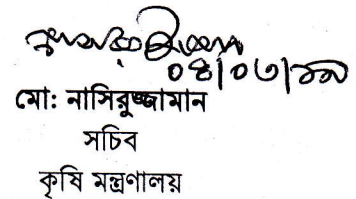 ০৪/০৩/১৯
মো: নাসিরুজ্জামান
সচিব
কৃষি মন্ত্রণালয়